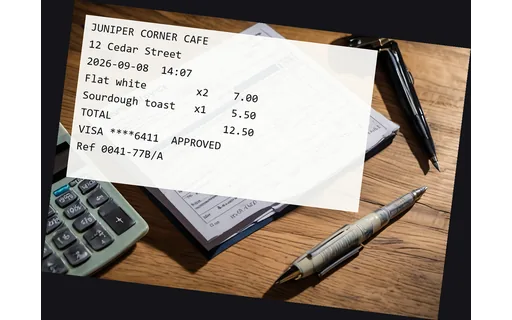 JUNIPER CORNER CAFE
12 Cedar Street
2026-09-08 14:07
Flat white x2 7.00
Sourdough toast x1 5.50
TOTAL 12.50
VISA ****6411 APPROVED
Ref 0041-77B/A